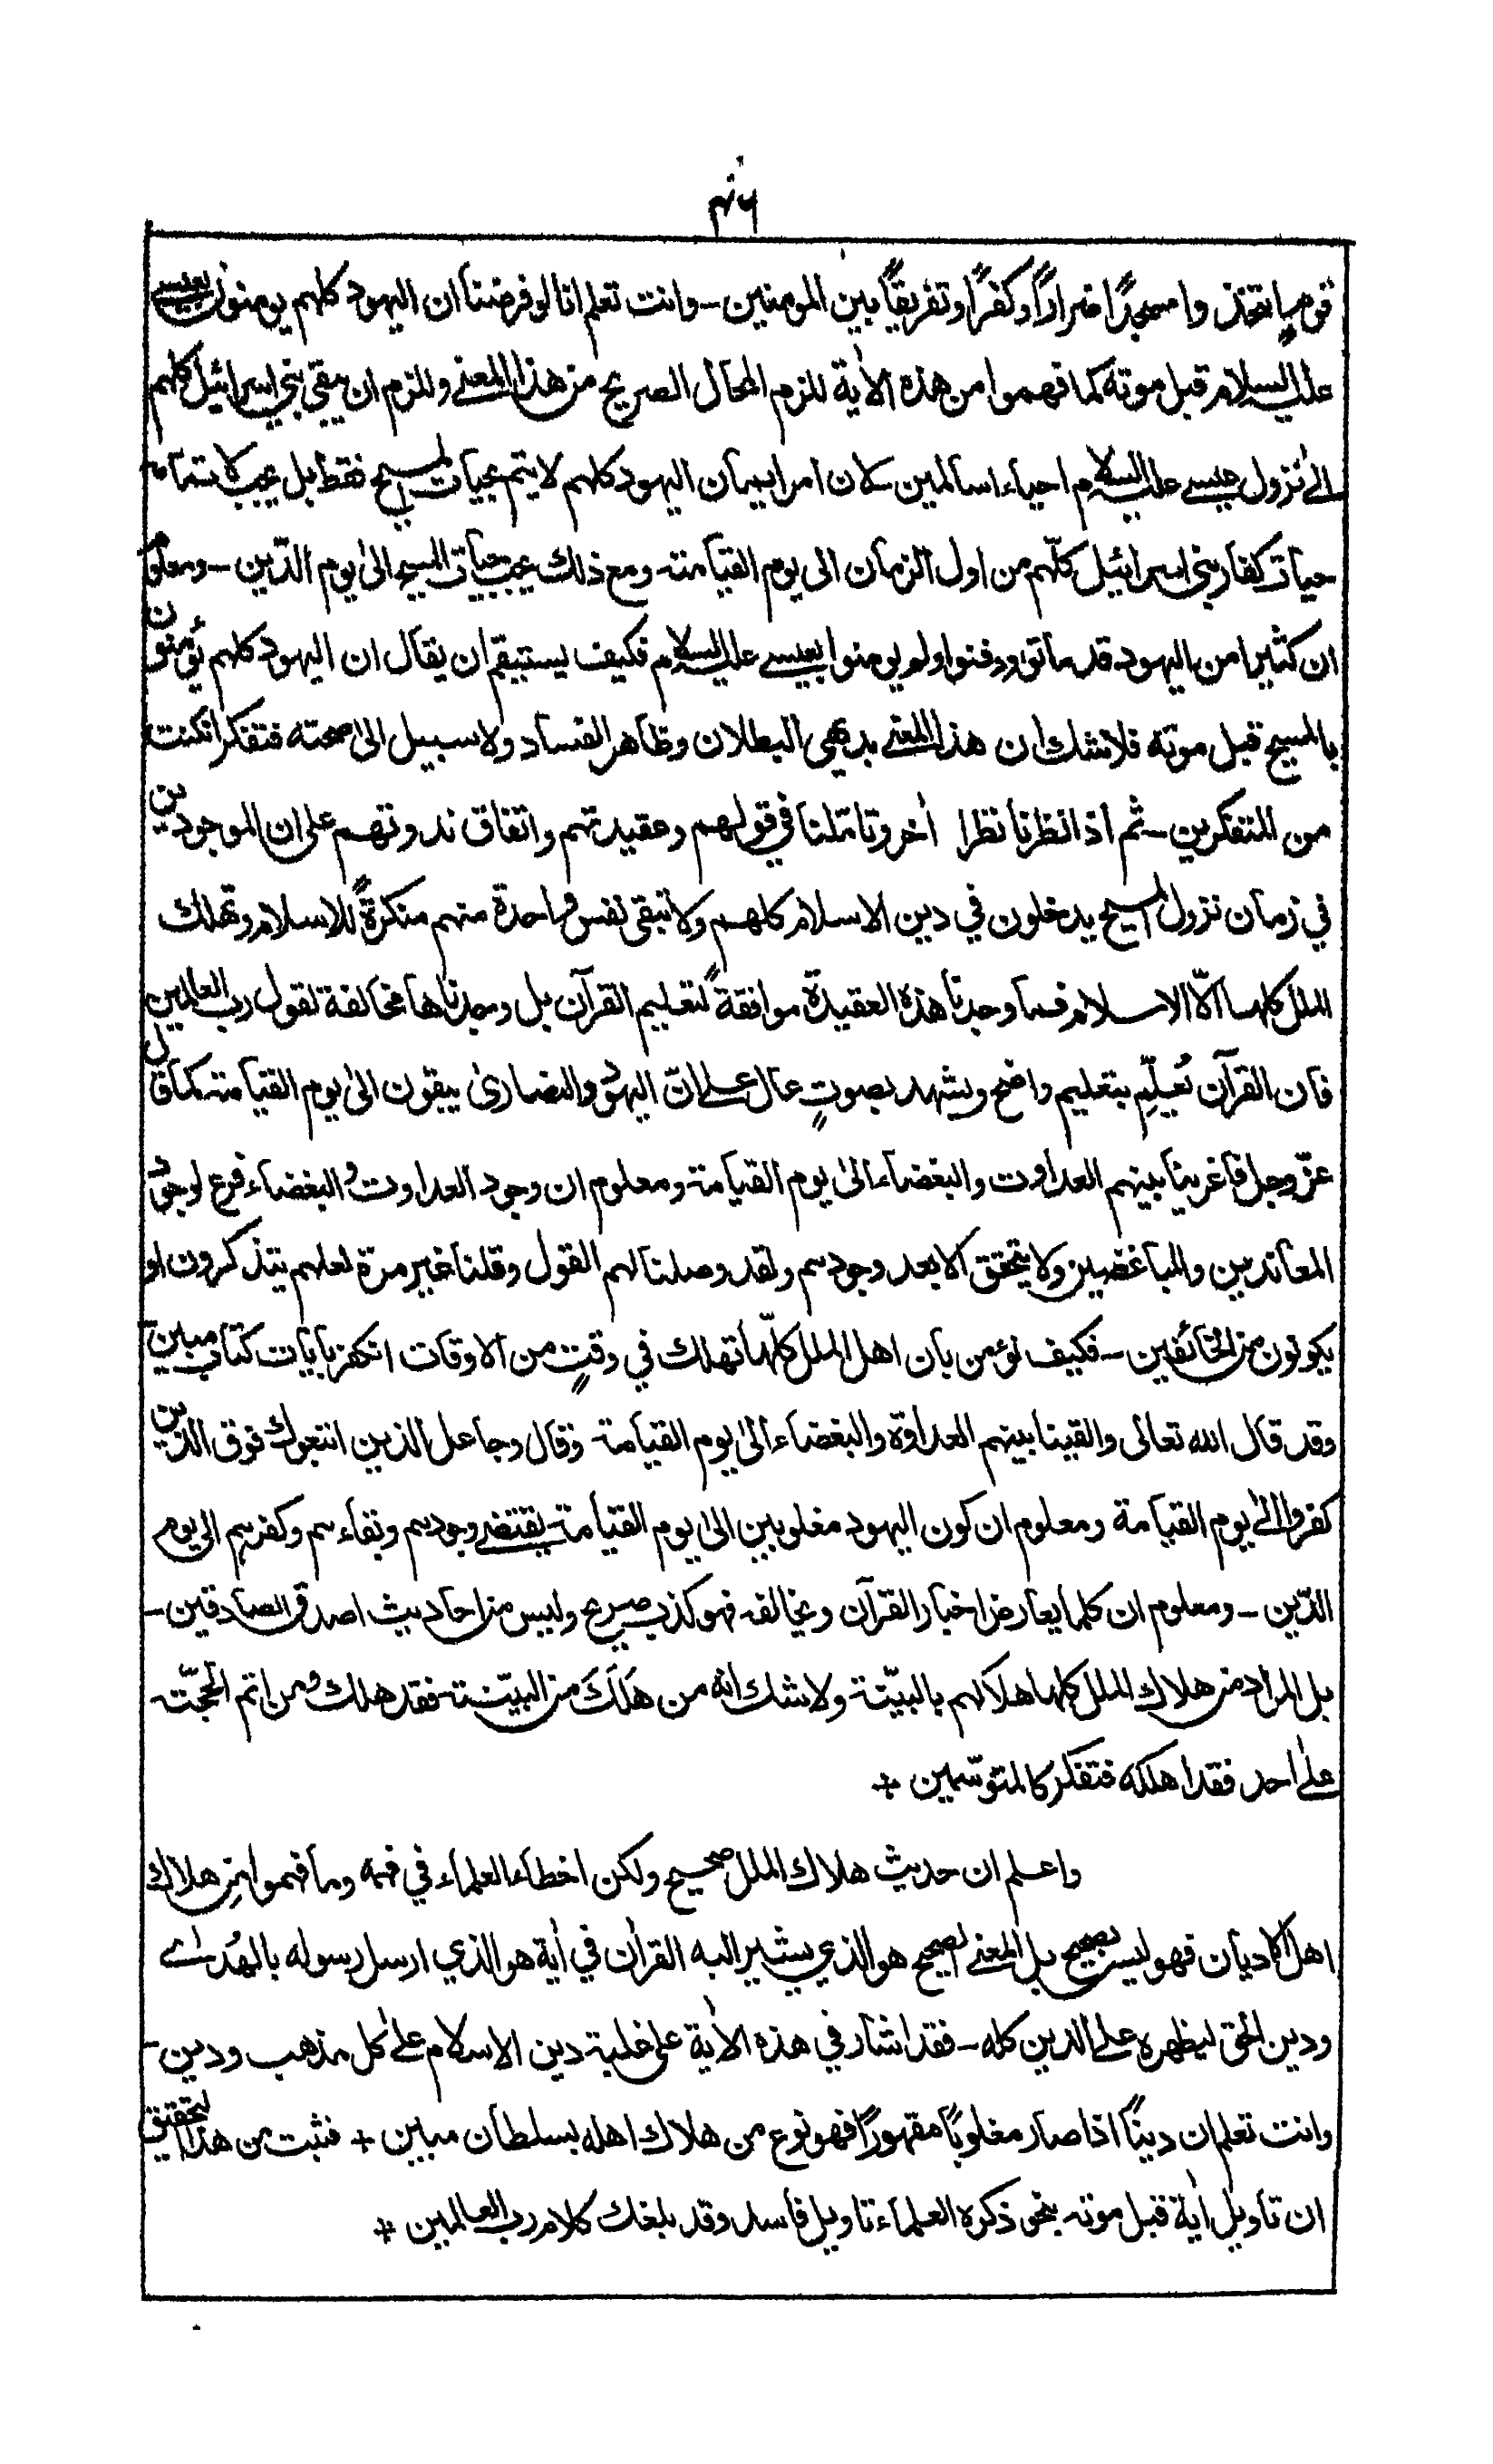 ۴۶
قومٍ اتخذوا مسجدًا ضرارًا وكفرًا وتفريقًا بين المومنين ـ وانت تعلم انا لو فرضنا ان اليهود كلهم يومنون بعيسے
عليه السلام قبل موته كما فهموا من هذه الاٰية للزم المحال الصريح من هذا المعنے وللزم ان يبقى بني اسرائيل كلهم
الىٰ نزول عيسے عليه السلام احياء سالمين لان امر ايمان اليهود كلهم لا يتم بحيات المسيح فقط بل يجب لاتمامه
حيات كفار بنى اسرائيل كلّهم من اول الزمان الى يوم القيامة ومع ذلك يجب حيات المسيح الىٰ يوم الدّين ـ ومعلوم
ان كثيرا من اليهود قد ماتوا ودفنوا ولم يومنوا بعيسے عليه السلام فكيف يستقيم ان يقال ان اليهود كلهم يؤمنون
بالمسيح قبل موته فلا شك ان هذا المعنے بديهي البطلان وظاهر الفساد ولا سبيل الىٰ صحته فتفكر انكنت
من المتفكرين ـ ثم اذا نظرنا نظرا اٰخر وتاملنا في قولهم وعقيدتهم واتفاق ندوتهم على ان الموجودين
في زمان نزول المسيح يدخلون في دين الاسلام كلهم ولا تبقى نفس واحدة منهم منكرةً للاسلام وتهلك
الملل كلها الّا الاسلام فما وجدنا هذه العقيدة موافقةً لتعليم القرآن بل وجدناها مخالفة لقول رب العالمين
فان القرآن يُعلّم بتعليم واضح ويشهد بصوتٍ عال على انّ اليهود والنصارىٰ يبقون الىٰ يوم القيامة كما قال
عزّ وجل فاغرينا بينهم العداوت والبغضاء الىٰ يوم القيامة ومعلوم ان وجود العداوت والبغضاء فرع لوجود
المعاندين والمباغضين ولا يتحقق الا بعد وجودهم ولقد وصلنا لهم القول وقلنا غير مرة لعلهم يتذكرون او
يكونون من الخائفين ـ فكيف نؤمن بان اهل الملل كلّها تهلك في وقتٍ من الاوقات انكفر بايات كتاب مبين
وقد قال الله تعالى والقينا بينهم العداوة والبغضاء الىٰ يوم القيامة وقال وجاعل الذين اتبعوك فوق الذين
كفروا الىٰ يوم القيامة ومعلوم ان كون اليهود مغلوبين الىٰ يوم القيامة يقتضے وجودهم وبقاءهم وكفرهم الى يوم
الدّين ـ ومعلوم ان كلما يعارض اخبار القرآن ويخالفه فهو كذب صريح وليس من احاديث اصدق الصادقين ـ
بل المراد من هلاك الملل كلها هلاكهم بالبيّنة ولا شك انه من هَلَكَ من البيّنة فقد هلك ومن اتم الحجّة
علىٰ احد فقد اهلكه فتفكر كالمتوسّمين +
واعلم ان حديث هلاك الملل صحيح ولكن اخطاء العلماء في فهمه وما فهموا من هلاك
اهل الاديان فهو ليس بصحيح بل المعنے الصحيح هو الذي يشير اليه القراٰن في اٰية هو الذي ارسل رسوله بالهُدٰے
ودين الحق ليظهره على الدين كله ـ فقد اشار في هذه الاٰية على غلبة دين الاسلام علىٰ كل مذهب ودين ـ
وانت تعلم ان دينًا اذا صار مغلوبًا مقهورًا فهو نوع من هلاك اهله بسلطان مبين + فثبت من هذا التحقيق
ان تاويل اٰية قبل موته بنحو ذكره العلماء تاويل فاسد وقد بلغك كلام رب العالمين +